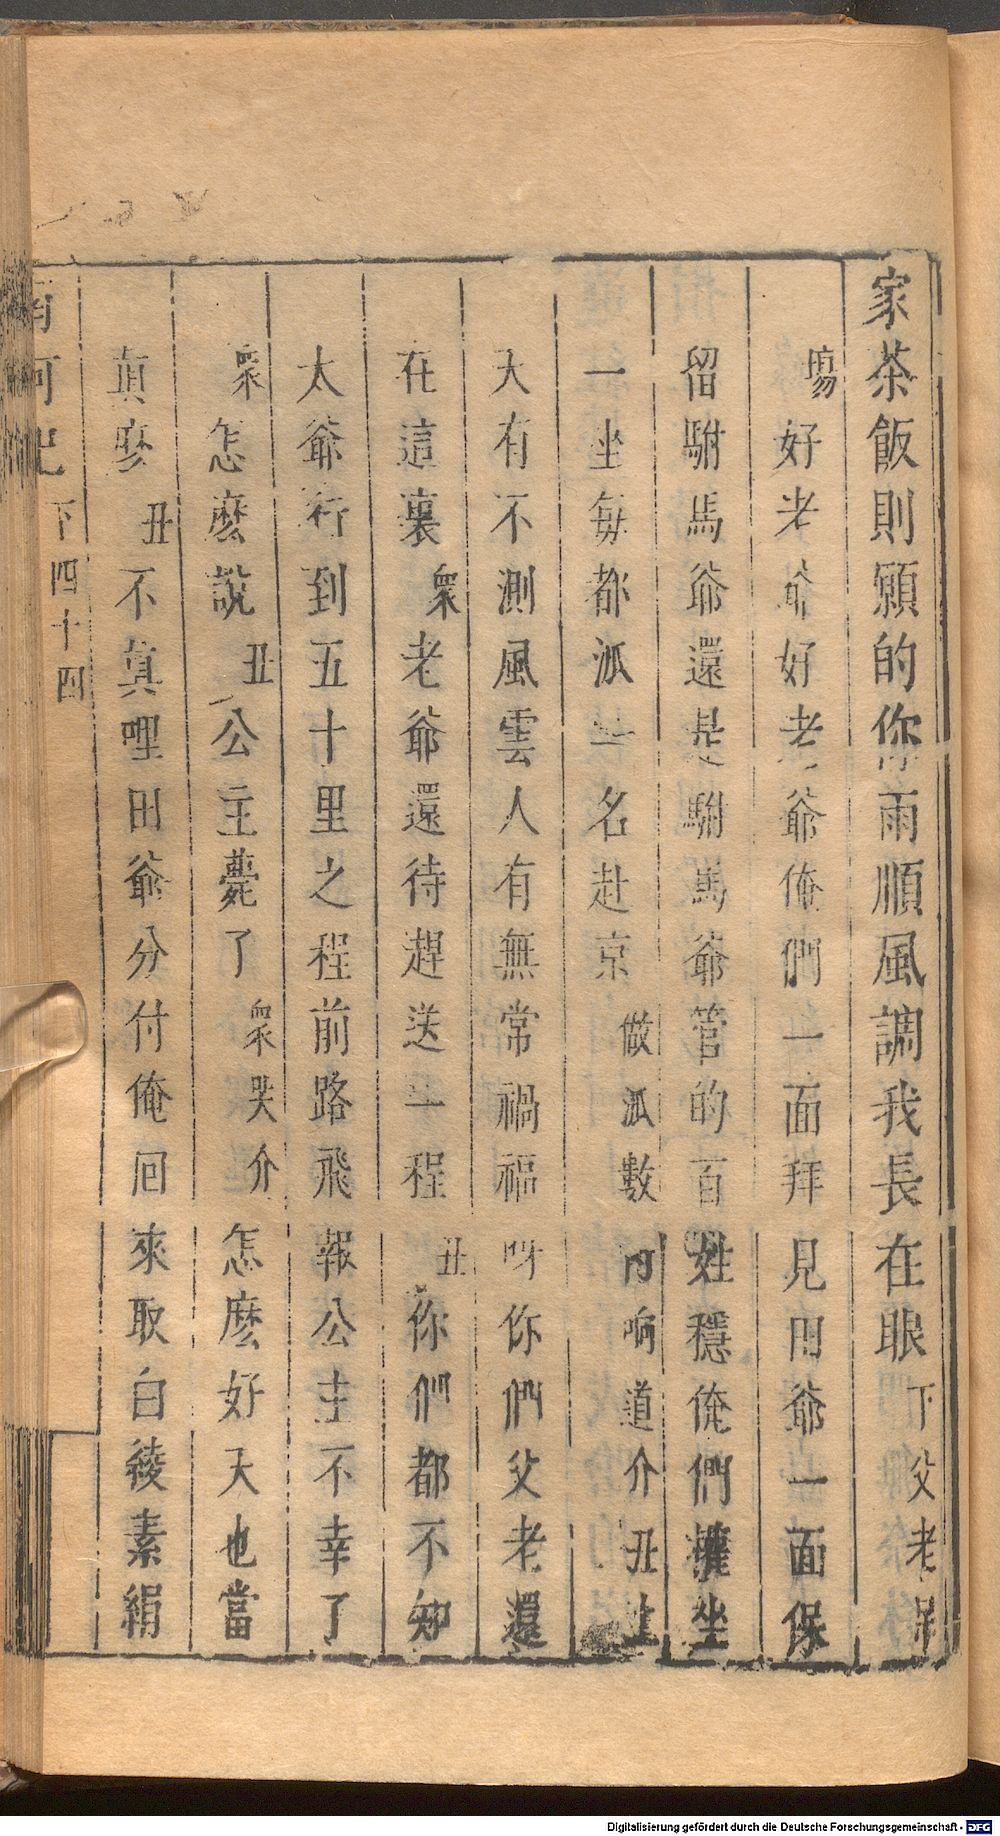 家茶飯則願的你雨順風調我長在眼下父老吊
場好老爺好老爺俺們一面拜見田爺一面保
留駙馬爺還是駙馬爺管的百姓穩俺們攤坐
一坐每都派一名赴京做派數內响道介丑上
天有不測風雲人有無常禍福呀你們父老還
在這裏眾老爺還待趕送一程丑你們都不知
太爺行到五十里之程前路飛報公主不幸了
眾怎麼說丑公主薨了眾哭介怎麼好天也當
真麼丑不真哩田爺分付俺回來取白綾素絹
南柯記 下 四十四
Digitalisierung gefördert durch die Deutsche Forschungsgemeinschaft - DFG